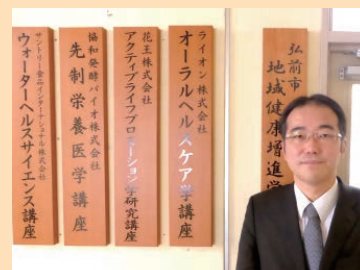 弘前市
地域健康増進学
ライオン株式会社
オーラルヘルスケア学講座
花王株式会社
アクティブライフプロモーション学研究講座
協和発酵バイオ株式会社
先制栄養医学講座
サントリー食品インターナショナル株式会社
ウォーターヘルスサイエンス講座